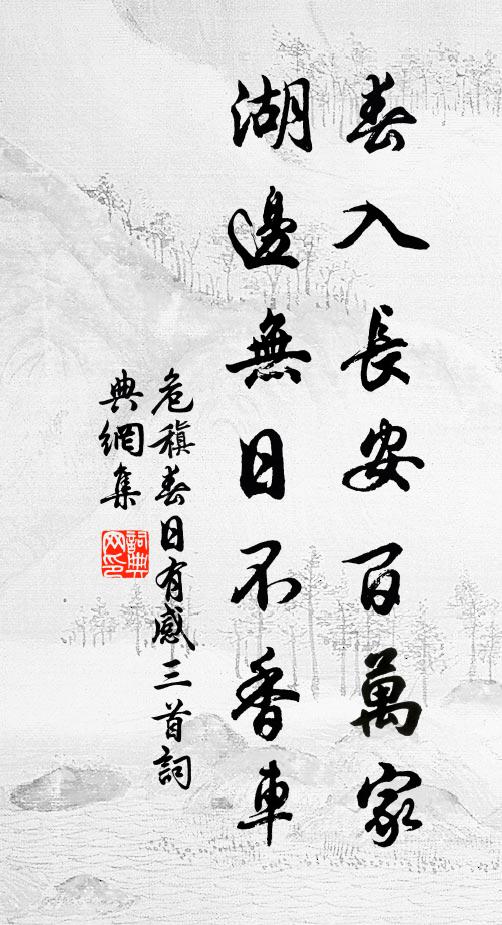 春入長安百萬家
湖邊無日不香車
危稹春日有感三首詞
典網集
詞典
网印